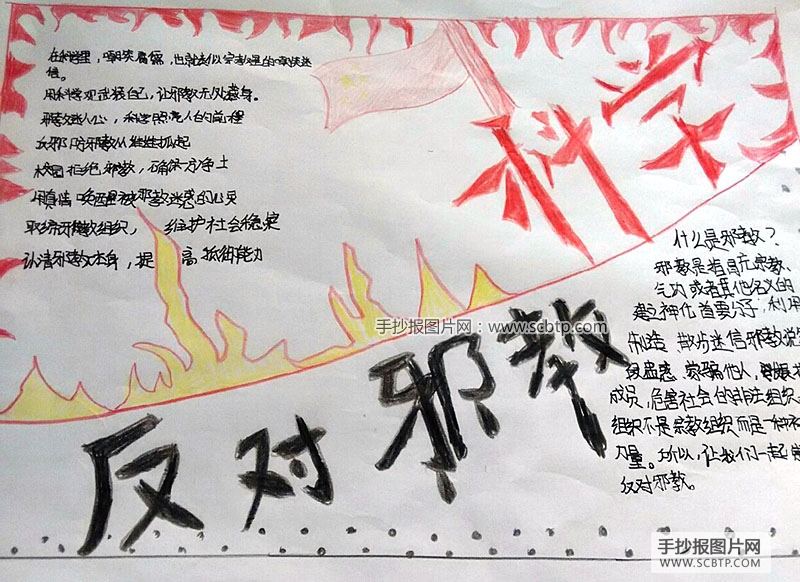 在科学里,嘲笑
信。
用科学观武装自己,让邪教无处藏身。
邪教迷人心,科学照亮人的前程
反邪防邪教从娃娃抓起
校园拒绝邪教,确保一方净土
用真情唤醒被邪教迷惑的心灵
取缔邪教组织,维护社会稳定
认清邪教本身,提高抵御能力
科学
什么是邪教?
邪教是指冒充宗教、
气功或者其他名义的
建立神化首要分子,利用
制造 散布迷信邪教说
蛊惑、蒙骗他人,
成员,危害社会的非法组织。
组织不是宗教组织而是一种
力量。所以,让我们一起
反对邪教。
手抄报图片网:www.scbtp.com
反对邪教
手抄报图片网
WWW.SCBTP.COM